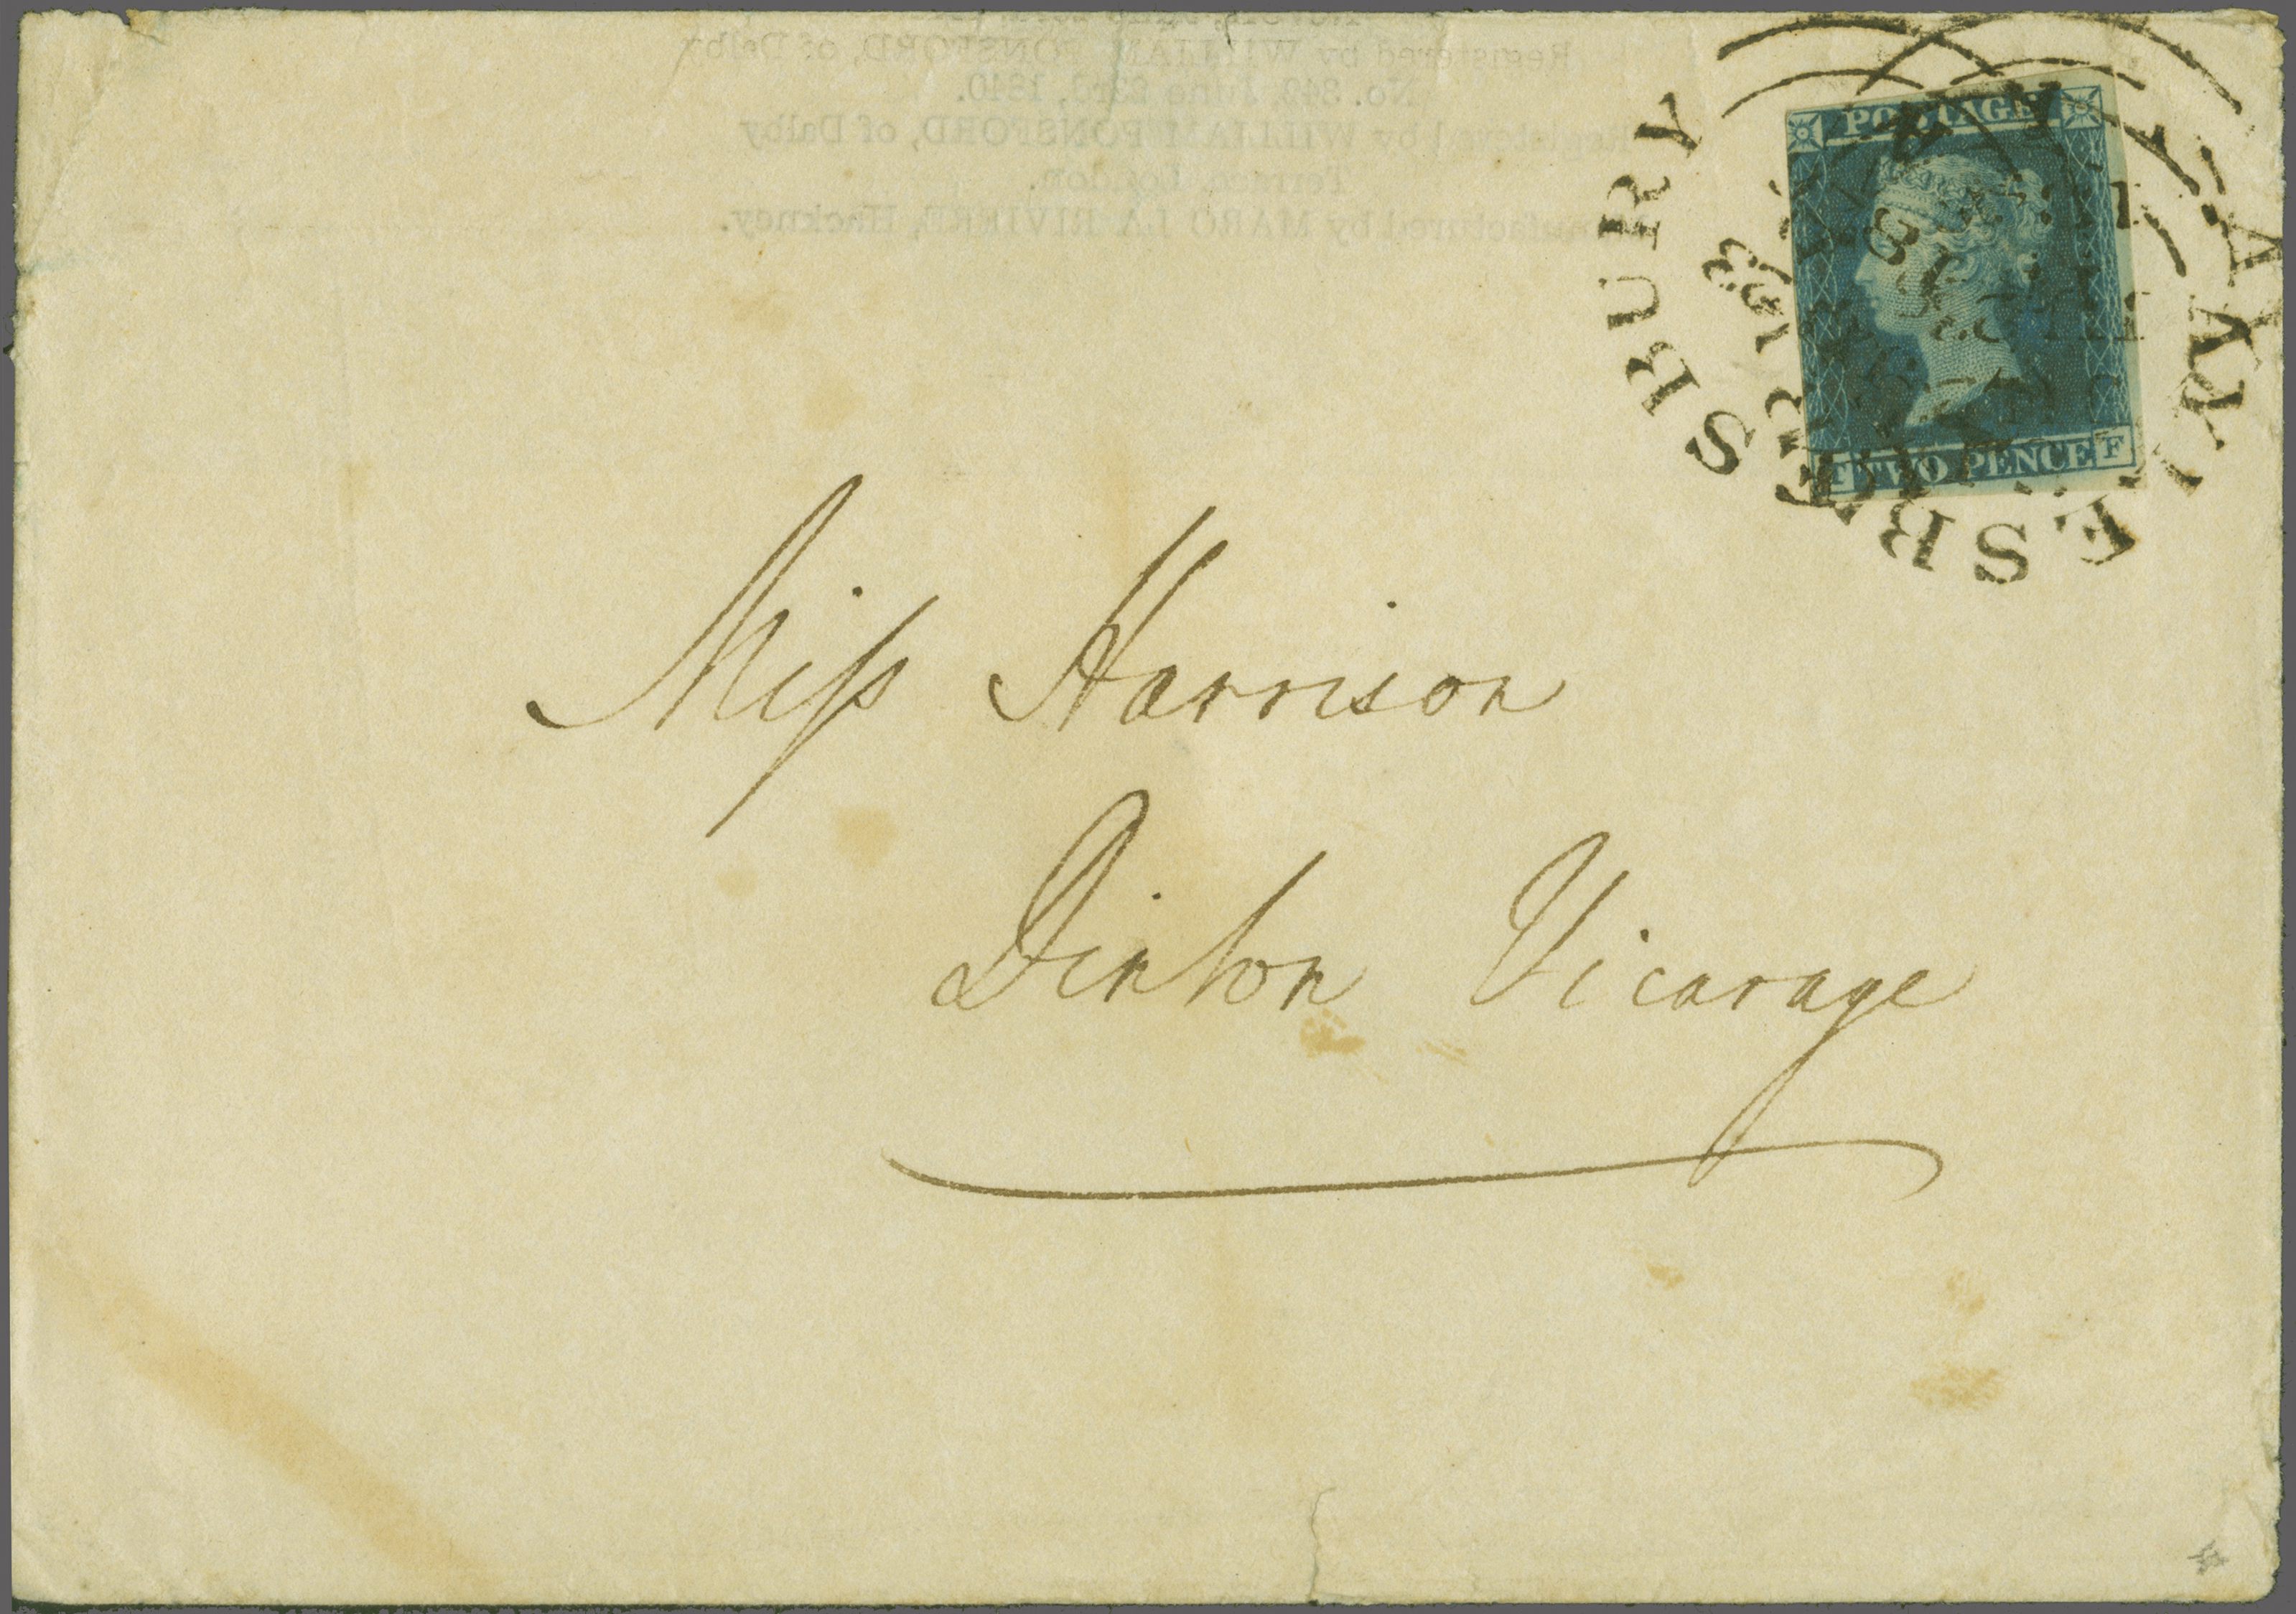 Registered by WILLIAM PONSFORD, of Dalby
No. 349, June 23rd, 1840.
Registered by WILLIAM PONSFORD, of Dalby
Terrace, London.
Manufactured by MARO LA RIVIERE, Hackney.
AYLESBURY
AYLESBURY
POSTAGE
TWO PENCE
F
Miss Harrison
Dinton Vicarage